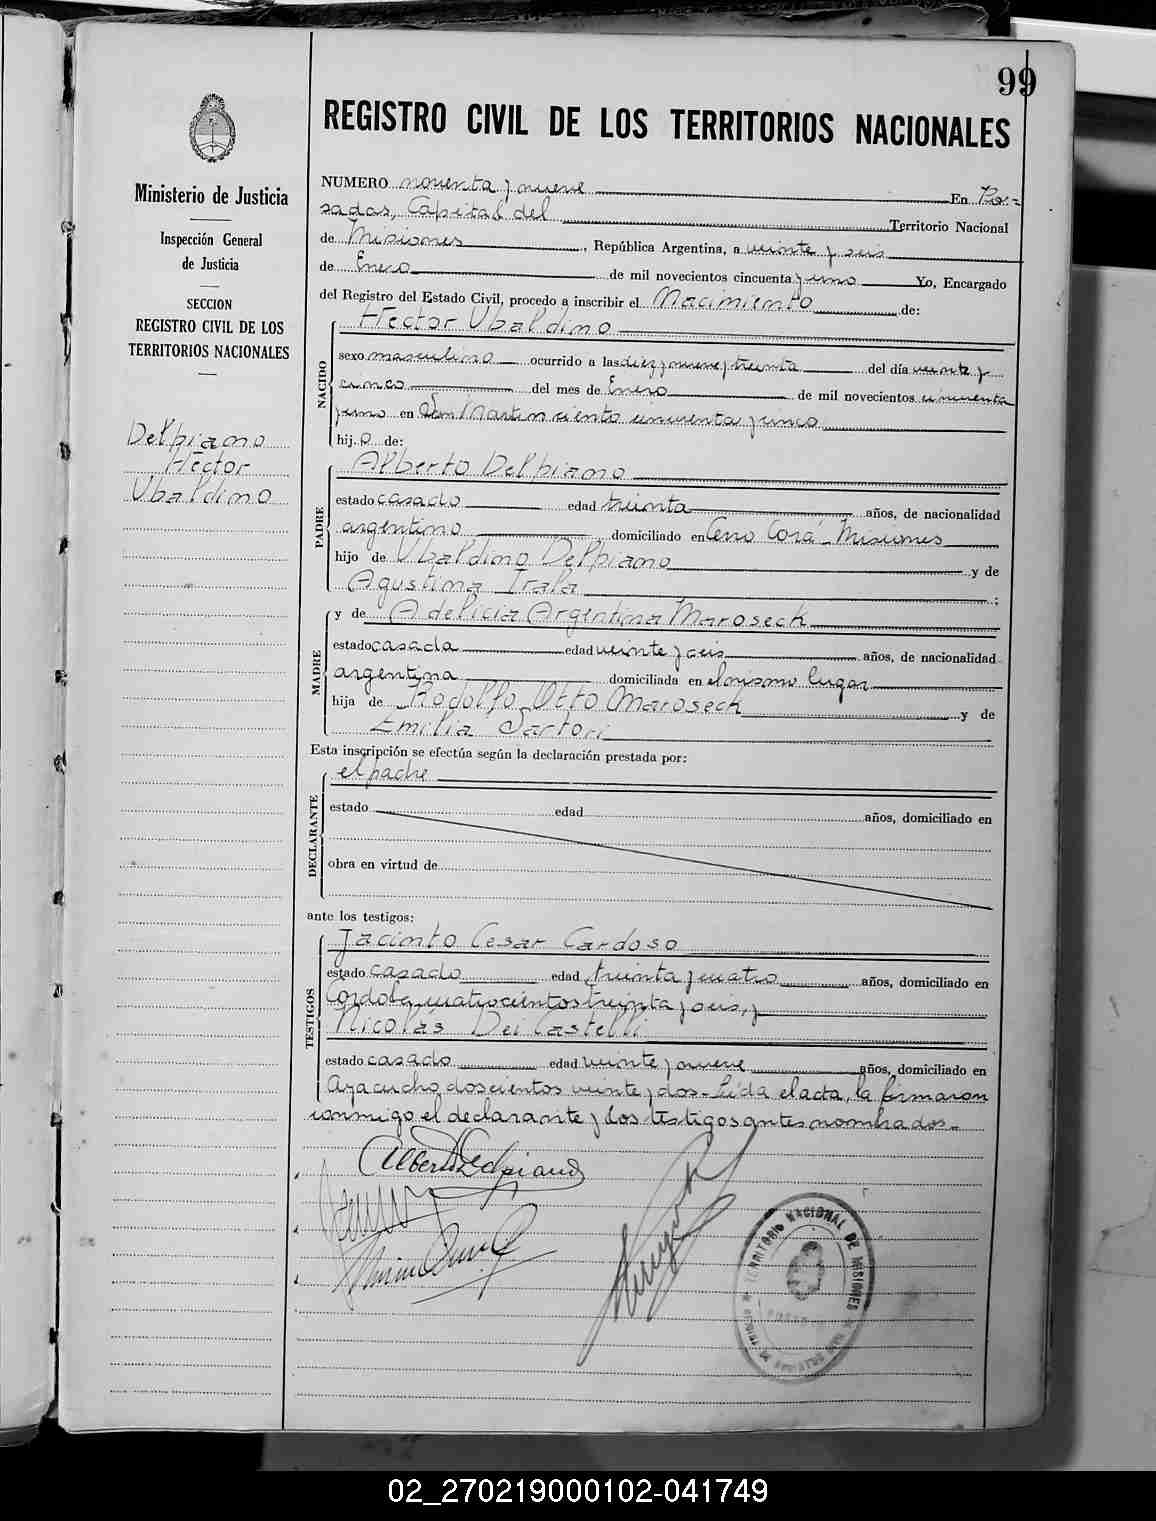 99
REGISTRO CIVIL DE LOS TERRITORIOS NACIONALES
Ministerio de Justicia
Inspección General
de Justicia
SECCION
REGISTRO CIVIL DE LOS
TERRITORIOS NACIONALES
Delpiano
Héctor
Ubaldino
NUMERO noventa y nueve En Po=
sadas, Capital del Territorio Nacional
de Misiones, República Argentina, a veinte y seis
de Enero de mil novecientos cincuenta y uno Yo, Encargado
del Registro del Estado Civil, procedo a inscribir el Nacimiento de:
NACIDO
Héctor Ubaldino
sexo masculino ocurrido a las diez y nueve y treinta del día veinte y
cinco del mes de Enero de mil novecientos cincuenta
y uno en San Martín ciento cincuenta y cinco
hijo de:
PADRE
Alberto Delpiano
estado casado edad treinta años, de nacionalidad
argentino, domiciliado en Cerro Corá - Misiones
hijo de Ubaldino Delpiano y de
Agustina Irala;
MADRE
y de Adelicia Argentina Maroseck
estado casada edad veinte y seis años, de nacionalidad
argentina domiciliada en el mismo lugar
hija de Rodolfo Otto Maroseck y de
Emilia Sartori
Esta inscripción se efectúa según la declaración prestada por:
DECLARANTE
el padre
estado edad años, domiciliado en
obra en virtud de
ante los testigos:
TESTIGOS
Jacinto Cesar Cardoso
estado casado edad treinta y cuatro años, domiciliado en
Córdoba cuatrocientos treinta y seis, y
Nicolás Dei Castelli
estado casado edad veinte y nueve años, domiciliado en
Ayacucho doscientos veinte y dos - Leída el acta, la firmaron
conmigo el declarante y los testigos antes nombrados.-
Alberto Delpiano
TERRITORIO NACIONAL DE MISIONES
02_270219000102-041749